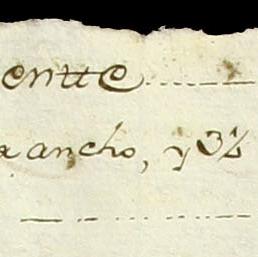 entte
a ancho, y 3½